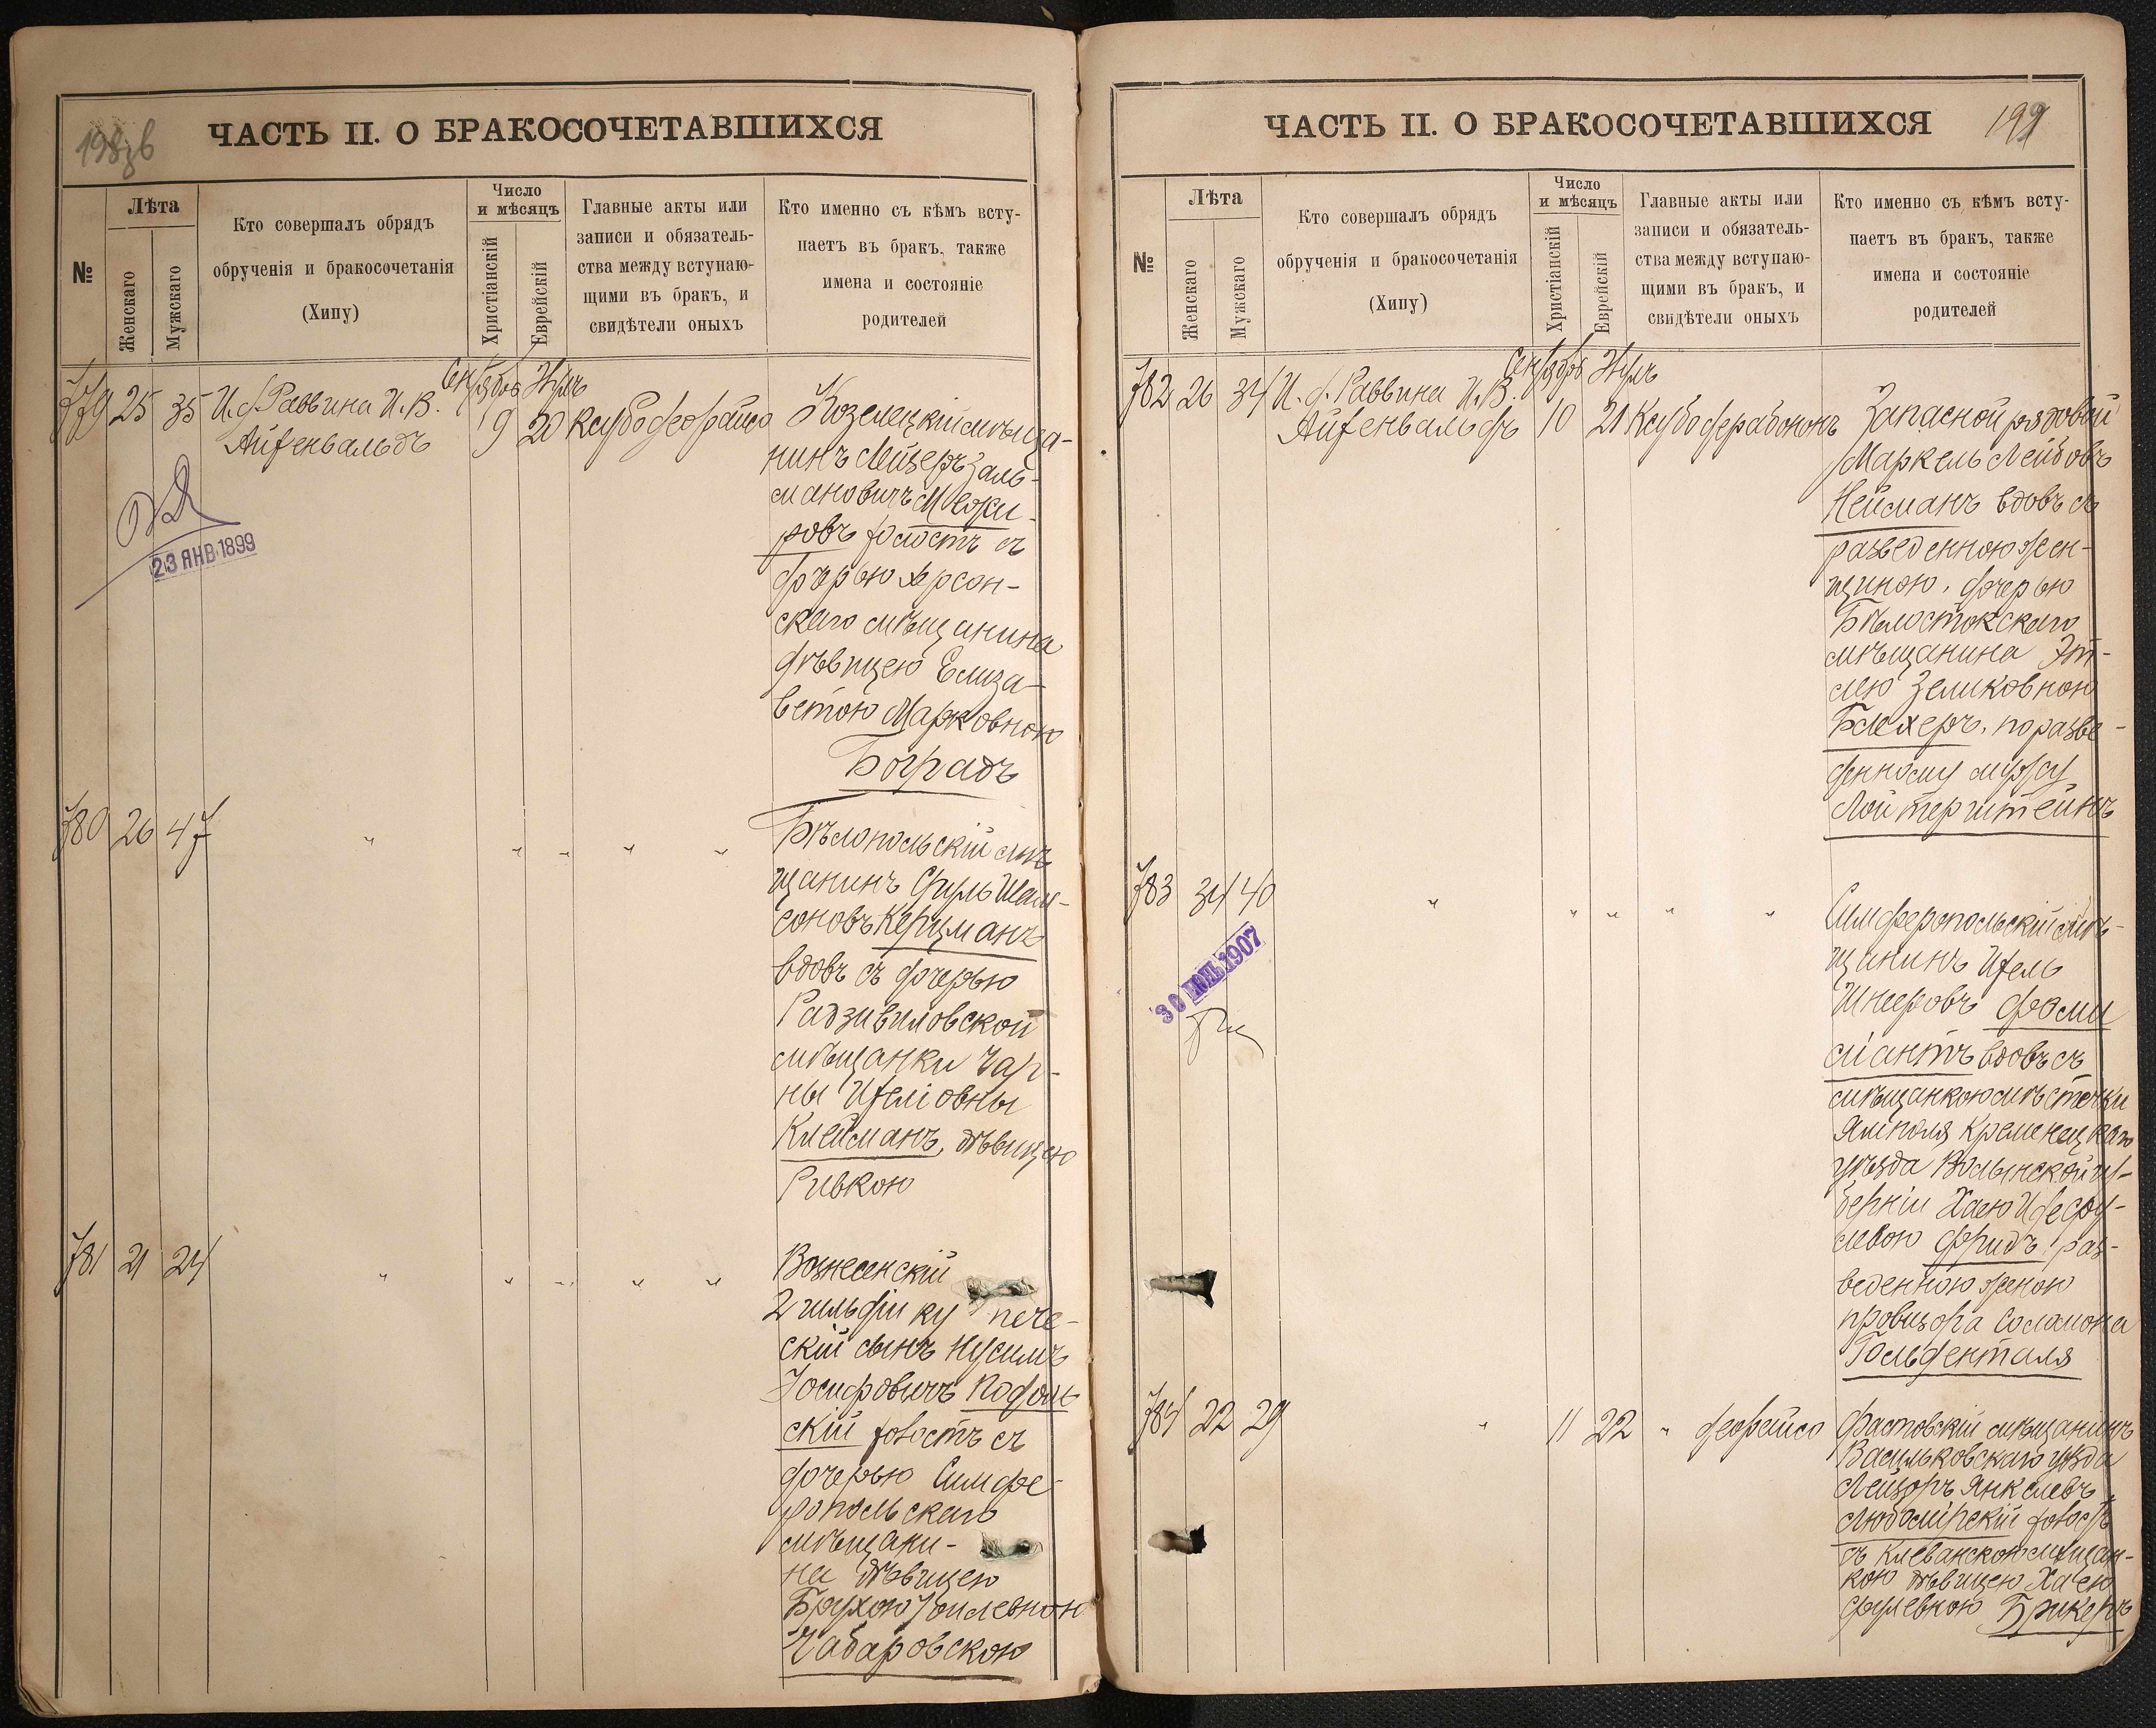 198 об
ЧАСТЬ II. О БРАКОСОЧЕТАВШИХСЯ
№
Лѣта
Женскаго
Мужскаго
Кто совершалъ обрядъ
обрученія и бракосочетанія
(Хипу)
Число
и мѣсяцъ
Христіанскій
Еврейскій
Главные акты или
записи и обязатель-
ства между вступаю-
щими въ бракъ, и
свидѣтели оныхъ
Кто именно съ кѣмъ всту-
паетъ въ бракъ, также
имена и состояніе
родителей
779 25 35 И. д. Раввина И. В.
Айзенвальдъ
Сентября
9 20
Козелецкій мѣща-
нинъ Лейзеръ Заль-
мановичъ Межи-
ровъ холостъ съ
дочерью Херсон-
скаго мѣщанина
дѣвицею Елиза-
ветою Марковною
Боградъ
23 ЯНВ 1899
780 26 47 " " " " "
Бѣлопольскій мѣ
щанинъ Сруль Шам-
соновъ Керцманъ
вдовъ съ дочерью
Радзивиловской
мѣщанки Чар-
ны Изеліовны
Клейманъ, дѣвицею
Ривкою
781 21 24 " " " " "
Вознесенскій
2 гильдіи ку пече-
скій сынъ Нусимъ
Іосифовичъ Подоль
скій холостъ съ
дочерью Симфе-
ропольскаго
мѣщани-
на дѣвицею
Брухою Іойлевною
Чабаровскою
199
ЧАСТЬ II. О БРАКОСОЧЕТАВШИХСЯ
№
Лѣта
Женскаго
Мужскаго
Кто совершалъ обрядъ
обрученія и бракосочетанія
(Хипу)
Число
и мѣсяцъ
Христіанскій
Еврейскій
Главные акты или
записи и обязатель-
ства между вступаю-
щими въ бракъ, и
свидѣтели оныхъ
Кто именно съ кѣмъ всту-
паетъ въ бракъ, также
имена и состояніе
родителей
782 26 34 И. д. Раввина И. В.
Айзенвальдъ
Сентября
10 21
Запасной рядовой
Маркель Лейбовъ
Нейманъ вдовъ съ
разведенною жен-
щиною, дочерью
Бѣлостокскаго
мѣщанина Эт-
лею Зеликовною
Блехеръ, по разве-
денному мужу
Лойтерштейнъ
783 34 40 " " " " "
30 ІЮН 1907
Симферопольскій мѣ-
щанинъ Изель
Шнееровъ Фами
ліантъ вдовъ съ
мѣщанкою мѣстечки
Ямполя Кременецкаго
уѣзда Волынской гу-
берніи Хаею Идесру-
левою Фридъ, раз-
веденною женою
провизора Соломона
Гольденталя
784 22 29 " 11 22 "
Фастовскій мѣщанинъ
Васильковскаго уѣзда
Лейзоръ Янкелевъ
Любомірскій холостъ
съ Клеванскою мѣщан-
кою дѣвицею Хаею
Срулевною Брикеръ